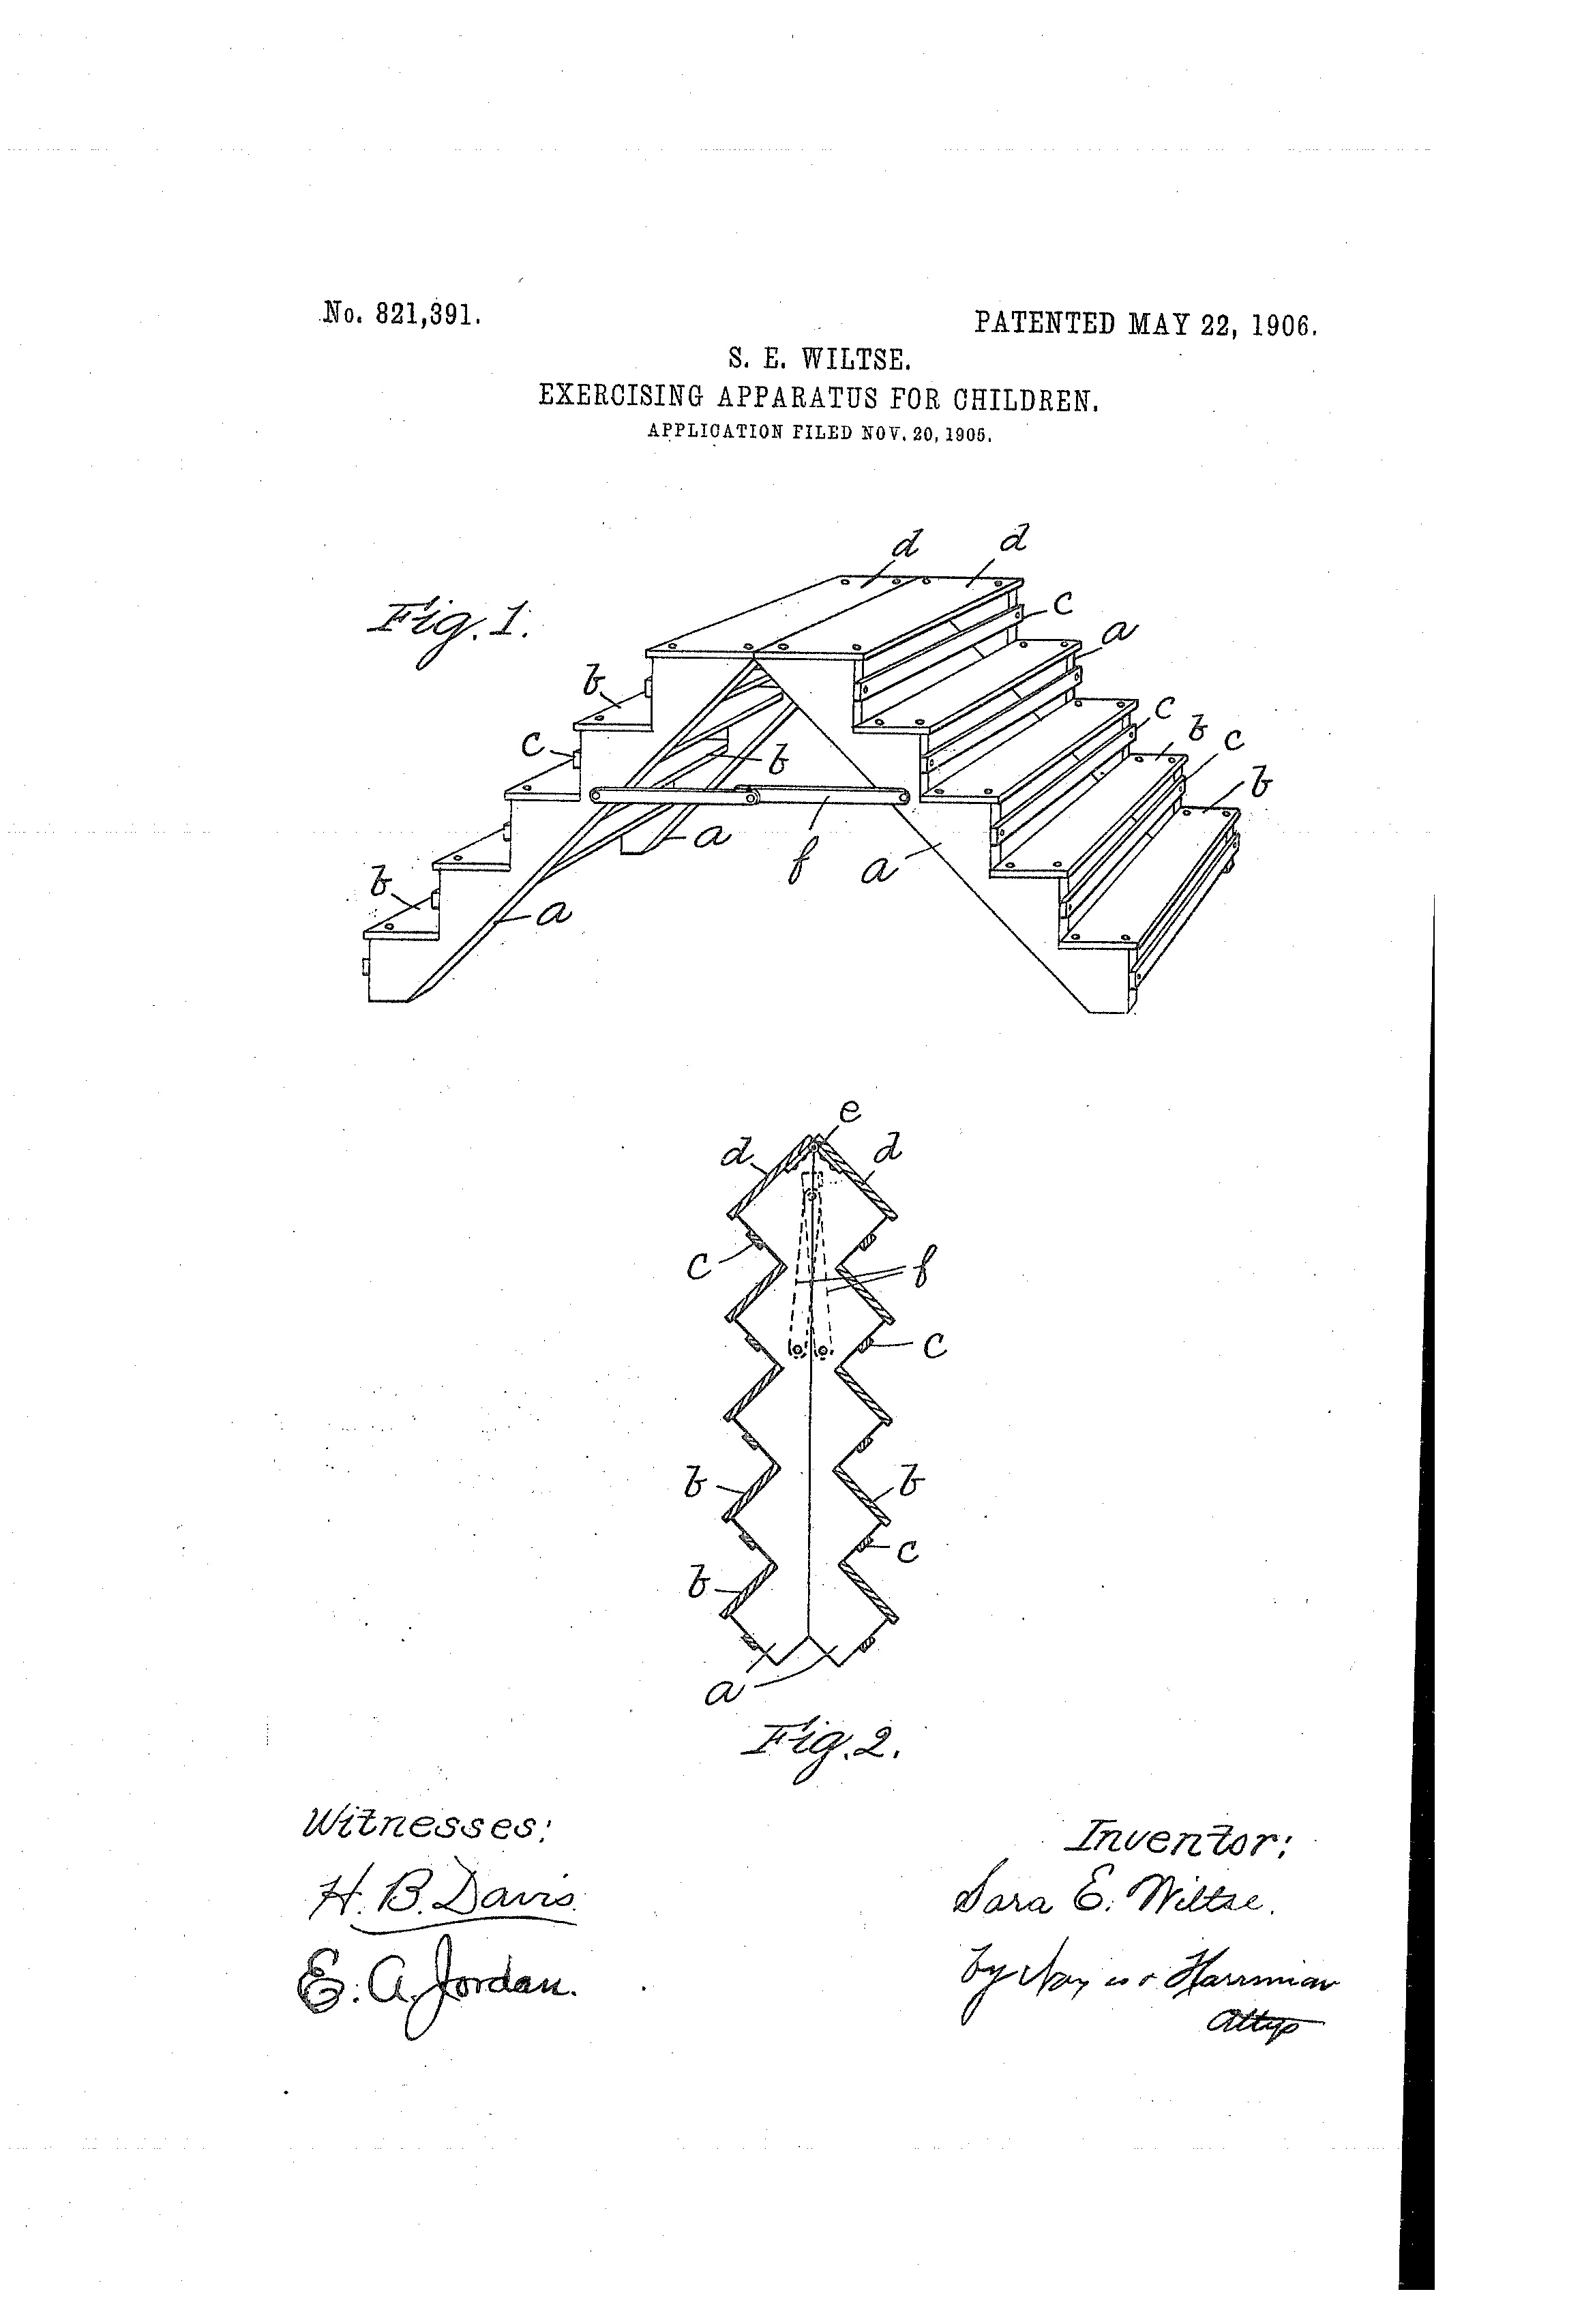 No. 821,391.
PATENTED MAY 22, 1906.
S. E. WILTSE.
EXERCISING APPARATUS FOR CHILDREN.
APPLICATION FILED NOV. 20, 1905.
Fig. 1.
d
d
c
a
b
c
b
c
b
c
b
a
f
a
b
a
e
d
d
c
f
c
b
b
c
b
a
Fig. 2.
Witnesses:
H. B. Davis.
E. A. Jordan.
Inventor:
Sara E. Wiltse.
by Harriman
Attys